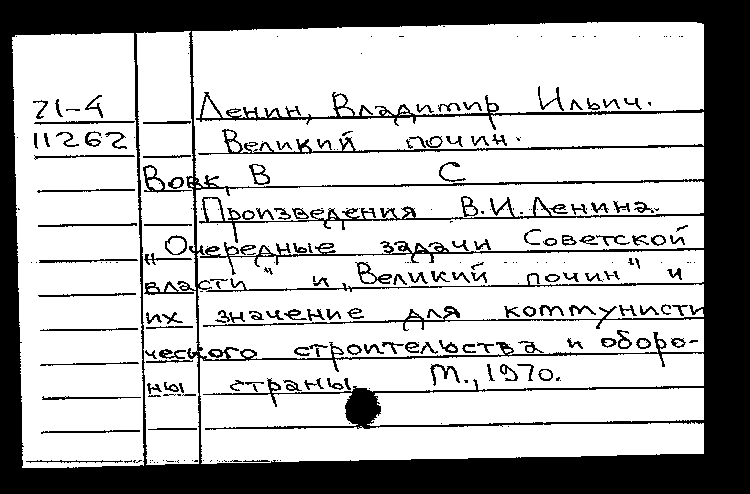 71-4 Ленин, Владимир Ильич.
11262 Великий почин.
Вовк, В С
Произведения В.И.Ленина.
„Очередные задачи Советской
власти" и „Великий почин" и
их значение для коммунисти
ческого строительства и оборо-
ны страны. М., 1970.